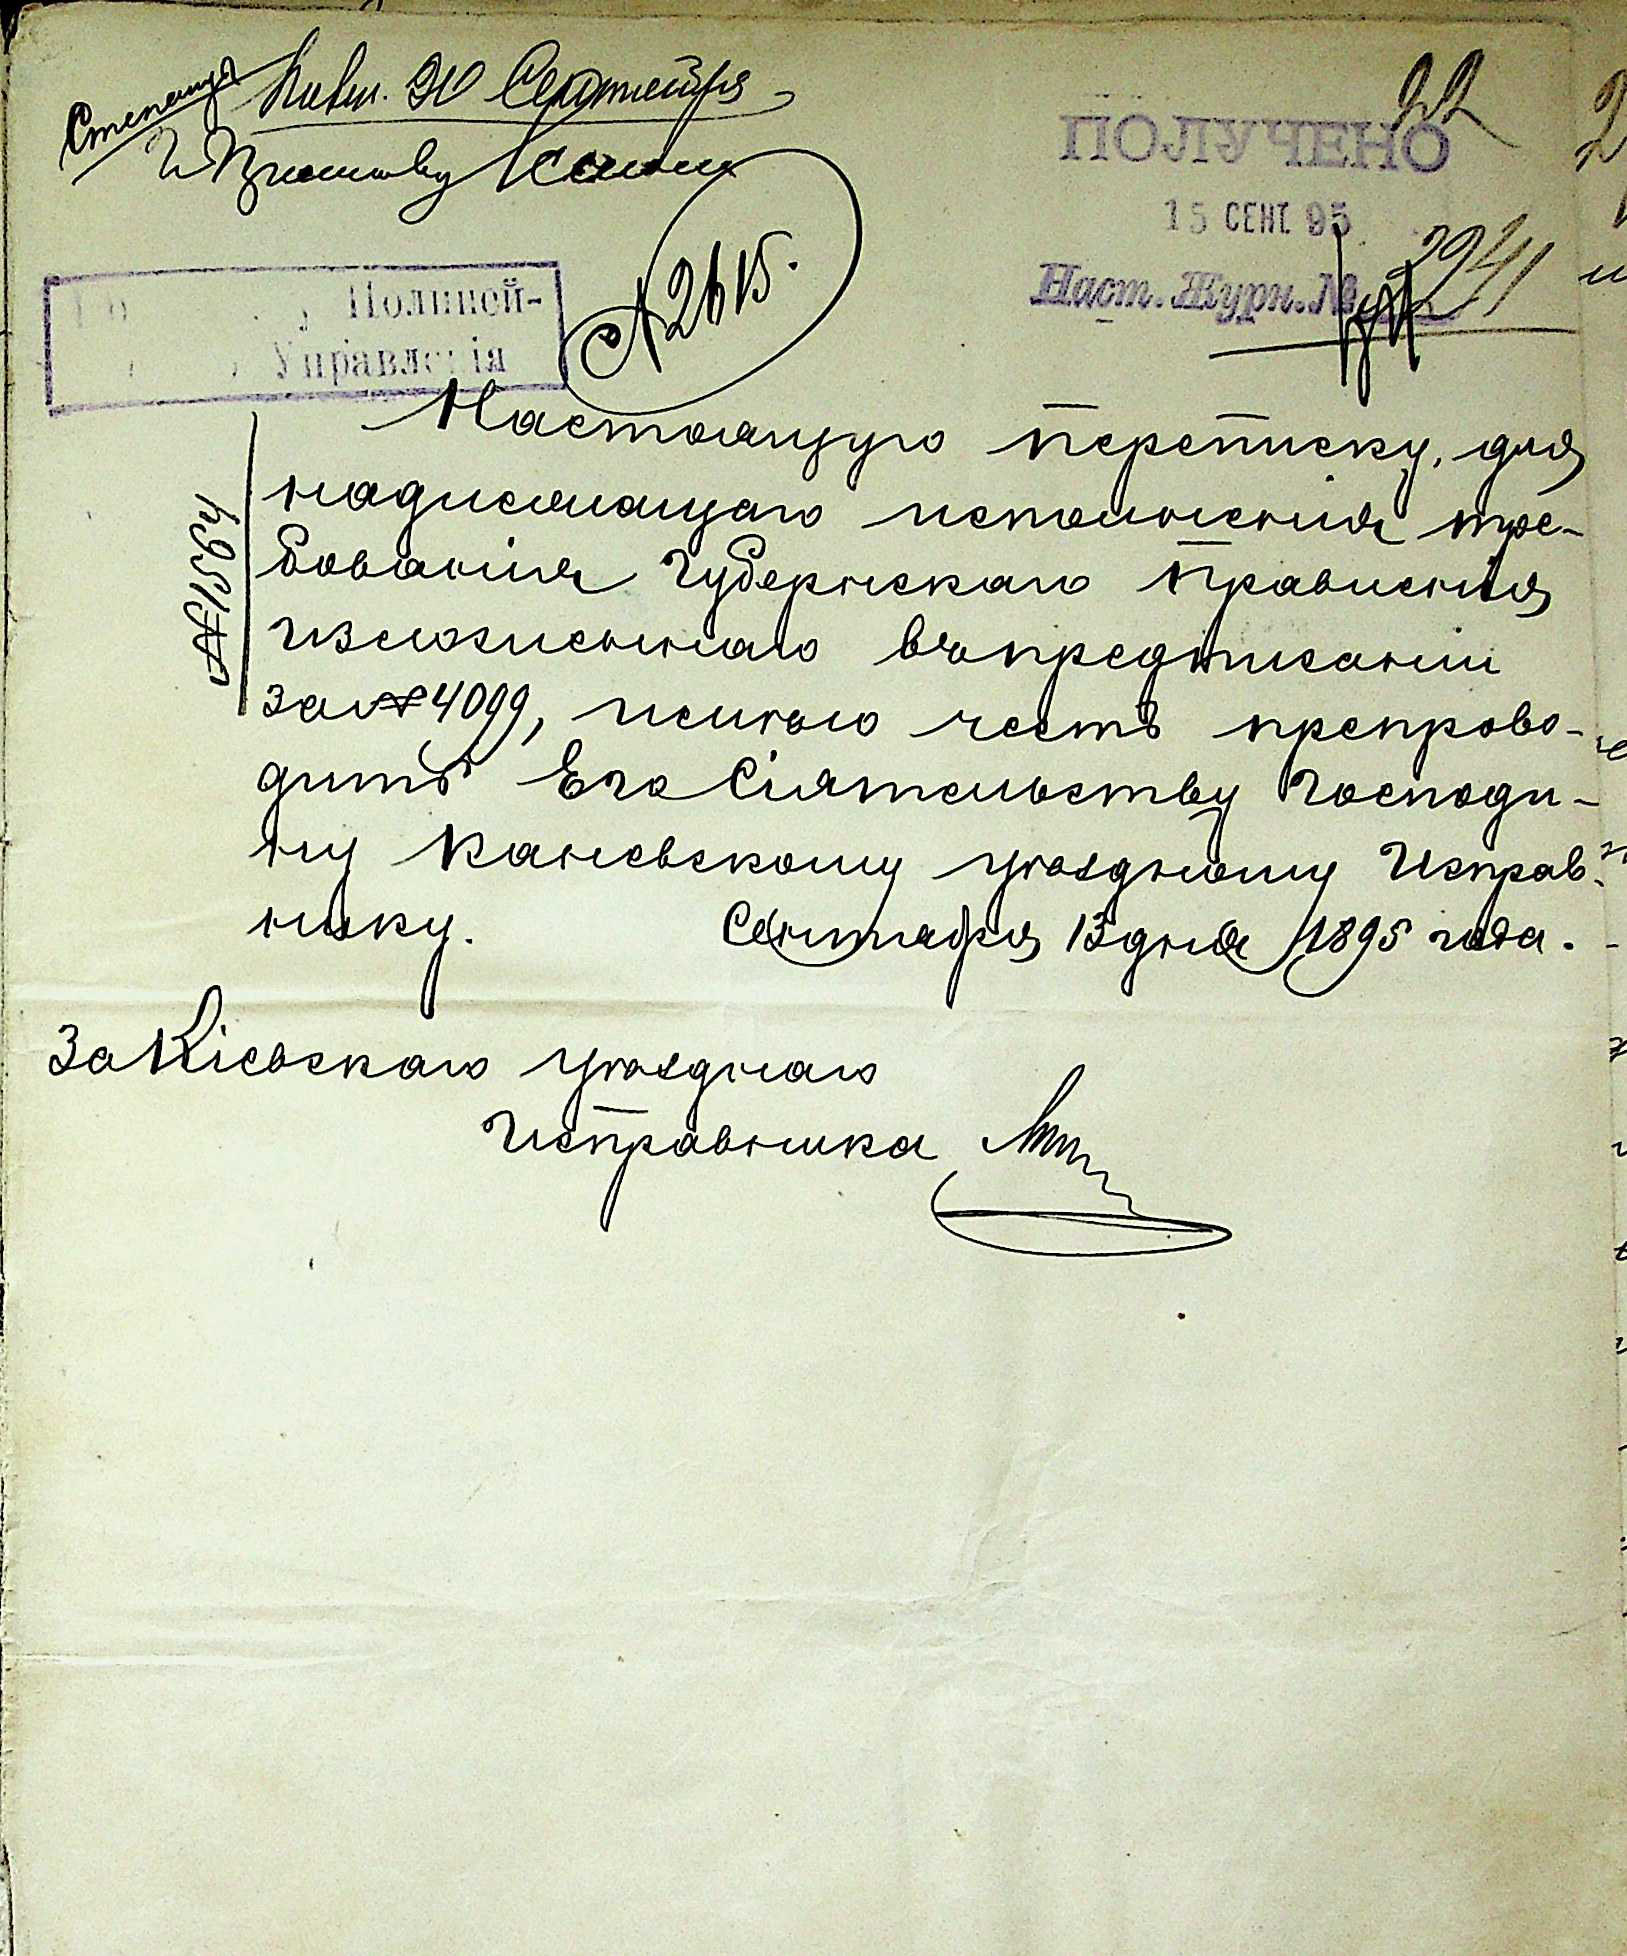 22
20 Сентября
ПОЛУЧЕНО
15 СЕНТ. 95
Наст. Журн. № 2941
Полицей-
Управленія
№ 2615.
№ 13564
Настоящую переписку, для
надлежащаго исполненія тре-
бованія Губернскаго Правленія
изложеннаго въ предписаніи
за № 4099, имѣю честь препрово-
дить Его Сіятельству Господи-
ну Каневскому уѣздному Исправ-
нику. Сентября 13 дня 1895 года.
За Кіевскаго уѣзднаго
Исправника